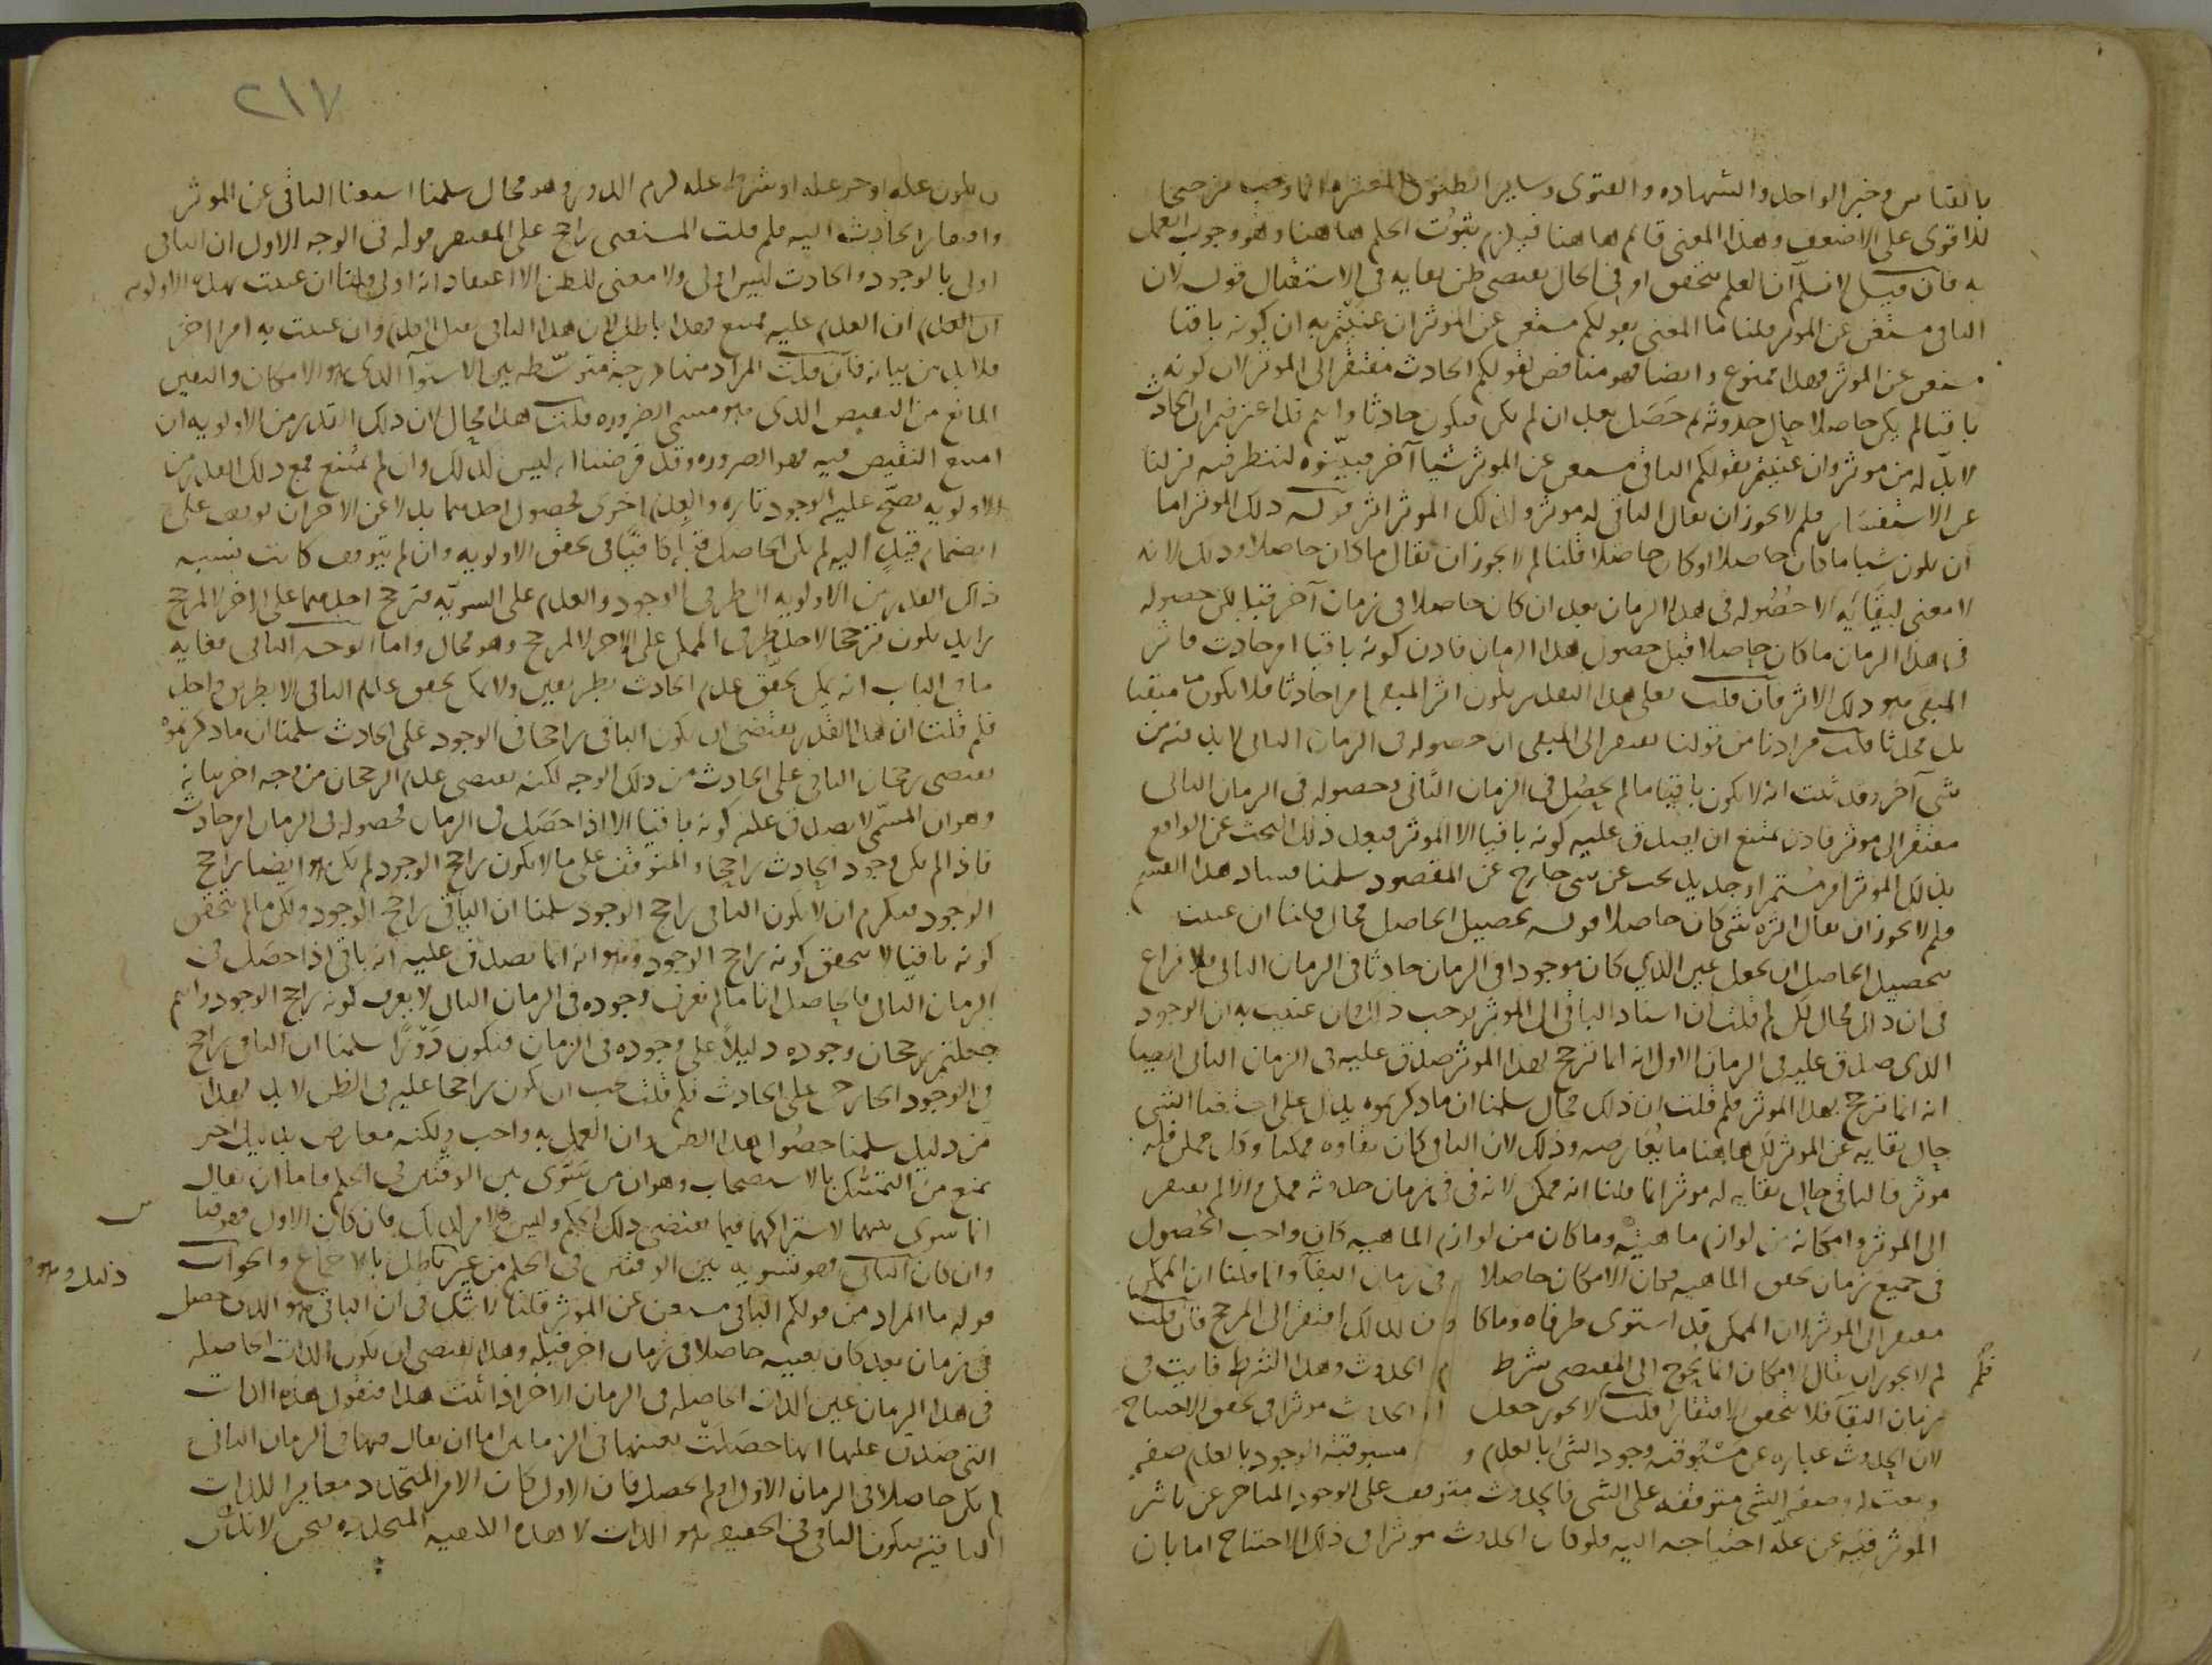 بالقياس وخبر الواحد والشهادة والفتوى وساير الظنون المعتبرة انما وجب ترجيحا
للاقوى على الاضعف وهذا المعنى قائم هاهنا فيلزم ثبوت الحكم هاهنا وهو وجوب العمل
به فان قيل لا نسلم ان العلم بتحقق امر في الحال يقتضى ظن بقايه في الاستقبال قوله لان
الباقى مستغن عن الموثر قلنا ما المعنى بقولكم مستغن عن الموثر ان عنيتم به ان كونه باقيا
مستغن عن الموثر فهذا ممنوع وايضا فهو مناقض لقولكم الحادث مفتقر الى الموثر لان كونه
باقيا لم يكن حاصلا حال حدوثه ثم حصل بعد ان لم يكن فيكون حادثا وانتم قد اعترفتم ان الحادث
لا بد له من موثر وان عنيتم بقولكم الباقى مستغن عن الموثر شيا آخر فبينوه لننظر فيه نزلنا
عن الاستفسار فلم لا يجوز ان يقال الباقى له موثر ولذلك الموثر اثر قوله ذلك الموثر اما
ان يكون شيا ما كان حاصلا او كان حاصلا قلنا لم لا يجوز ان يقال ما كان حاصلا وذلك لانه
لا معنى لبقايه الا حصوله في هذا الزمان بعد ان كان حاصلا في زمان آخر قبله لكن حصوله
في هذا الزمان ما كان حاصلا قبل حصول هذا الزمان فاذن كونه باقيا امر حادث فاثر
المبقى هو ذلك الاثر فان قلت فعلى هذا التقدير يكون اثر المبقى امرا حادثا فلا يكون مبقيا
بل محدثا قلت مرادنا من قولنا يفتقر الى المبقى ان حصوله في الزمان الثانى لا بد فيه من
شى آخر وقد ثبت انه لا يكون باقيا ما لم يحصل في الزمان الثانى وحصوله في الزمان الثانى
مفتقر الى موثر فاذن يمتنع ان يصدق عليه كونه باقيا الا لموثر فبعد ذلك البحث عن الواقع
بذلك الموثر امر مستمر او جديد بحث عن شى خارج عن المقصود سلمنا فساد هذا القسم
فلم لا يجوز ان يقال اثره شى كان حاصلا قوله تحصيل الحاصل محال قلنا ان عنيت
بتحصيل الحاصل ان يجعل عين الذي كان موجودا في الزمان حادثا في الزمان الثانى فلا نزاع
في ان ذلك محال لكن لم قلت ان اسناد الباقى الى الموثر يوجب ذلك وان عنيت به ان الوجود
الذى صدق عليه في الزمان الاول انه انما ترجح لهذا الموثر صدق عليه في الزمان الثانى ايضا
انه انما ترجح بهذا الموثر فلم قلت ان ذلك محال سلمنا ان ما ذكرتموه يدل على استغنا الشى
حال بقايه عن الموثر لكن هاهنا ما يعارضه وذلك لان الباقى كان بقاوه ممكنا وكل ممكن فله
موثر فالباقى حال بقايه له موثر انما قلنا انه ممكن لانه في زمان حدوثه ممكن والا لم يفتقر
الى الموثر وامكانه من لوازم ماهيته وما كان من لوازم الماهية كان واجب الحصول
في جميع زمان تحقق الماهية فكان الامكان حاصلا في زمان البقآ وانما قلنا ان الممكن
مفتقر الى الموثر لان الممكن قد استوى طرفاه وما كان كذلك افتقر الى المرجح فان قلت
فلم
لم لا يجوز ان يقال الامكان انما يحوج الى المقتضى بشرط الحدوث وهذا الشرط فايت في
زمان البقآ فلا يتحقق الافتقار قلت لا يجوز جعل الحدوث موثرا في تحقق الاحتياج
لان الحدوث عبارة عن مسبوقية وجود الشى بالعدم ومسبوقية الوجود بالعدم صفة
ونعت له وصفة الشى متوقفه على الشى فالحدوث متوقف على الوجود المتاخر عن تاثير
الموثر فيه عن علة احتياجه اليه فلو كان الحدوث موثرا في ذلك الاحتياج اما بان
٢١٧
يكون علة او جز علة او شرط علة لزم الدور وهو محال سلمنا استغنا الباقى عن الموثر
وافتقار الحادث اليه فلم قلت المستغنى راجح على المفتقر قوله في الوجه الاول ان الباقى
اولى بالوجود والحادث ليس اولى ولا معنى للظن الا اعتقاد انه اولى قلنا ان عنيت بهذه الاولويه
ان العدم عليه ممتنع فهذا باطل لان هذا الباقى يقبل العدم وان عنيت به امرا آخر
فلا بد من بيانه فان قلت المراد منها درجة متوسطه بين الاستوآ الذى هو الامكان والتعين
المانع من النقيض الذى هو مسمى الضروره قلت هذا محال لان ذلك القدر من الاولويه ان
امتنع النقيض فيه فهو الضروره وقد فرضنا انه ليس كذلك وان لم يمتنع فمع ذلك القدر من
الاولويه يصح عليه الوجود تاره والعدم اخرى فحصول احدهما بدلا عن الاخر ان توقف على
انضمام قيد اليه لم يكن الحاصل قبله كافيا في تحقق الاولويه وان لم يتوقف كانت نسبه
ذلك القدر من الاولويه الى طرفى الوجود والعدم على السويه فترجح احدهما على الاخر لا لمرجح
زايد يكون ترجيحا لاحد طرفى الممكن على الاخر لا لمرجح وهو محال واما الوجه الثانى فغايه
ما في الباب انه يمكن تحقق عدم الحادث بطريقين ولا يمكن تحقق عدم الباقى الا بطريق واحد
فلم قلت ان هذا القدر يقتضى ان يكون الباقى راجحا في الوجود على الحادث سلمنا ان ما ذكرتموه
يقتضى رجحان الباقى على الحادث من ذلك الوجه لكنه يقتضى عدم الرجحان من وجه اخر بيانه
وهو ان المسمى لا يصدق عليه كونه باقيا الا اذا حصل في الزمان فحصوله في الزمان امر حادث
فاذا لم يكن وجود الحادث راجحا والمتوقف على ما لا يكون راجح الوجود لم يكن هو ايضا راجح
الوجود فيلزم ان لا يكون الباقى راجح الوجود سلمنا ان الباقى راجح الوجود ولكن ما لم يتحقق
كونه باقيا لا يتحقق كونه راجح الوجود وهو انه انما يصدق عليه انه باقى اذا حصل في
الزمان الثانى فالحاصل انا ما لم نعرف وجوده في الزمان الثانى لا يعرف كونه راجح الوجود وانتم
جعلتم رجحان وجوده دليلا على وجوده في الزمان فيكون دورا سلمنا ان الباقى راجح
في الوجود الخارجى على الحادث فلم قلت يجب ان يكون راجحا عليه في الظن لا بد لهذا
من دليل سلمنا حصول هذا الظن وان العمل به واجب ولكنه معارض بدليل اخر
يمنع من التمسك بالاستصحاب وهو ان من سوى بين الوقتين في الحكم فاما ان يقال
انما سوى بينهما لاشتراكهما فيما يقتضى ذلك الحكم وليس الامر كذلك فان كان الاول فهو قياس
وان كان الثانى فهو تسويه بين الوقتين في الحكم من غير دليل وهو باطل بالاجماع والجواب
قوله ما المراد من قولكم الباقى مستغن عن الموثر قلنا لا شك في ان الباقى هو الذى حصل
في زمان بعد كان بعينه حاصلا في زمان اخر قبله وهذا يقتضى ان يكون الذات الحاصله
في هذا الزمان عين الذات الحاصله في الزمان الاخر اذا ثبت هذا فنقول هذه الذات
التى صدق عليها انها حصلت بعينها في الزمانين اما ان يقال فيها في الزمان الثانى
لم يكن حاصلا في الزمان الاول او لم يحصل فان الاول كان الامر المتجدد مغايرا للذات
الباقيه فيكون الباقى في الحقيقه هو الذات لا هذه الكيفيه المتجدده فنحن لا ندعى